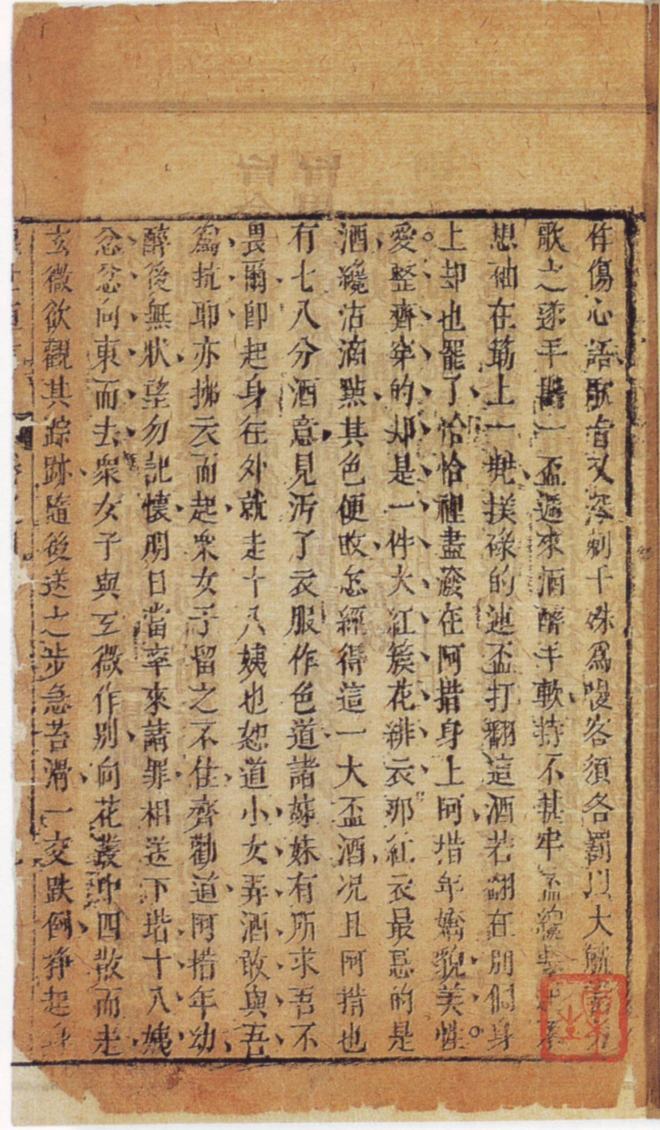 作傷心語歌旨又深刺于殊爲慢客須各罰以大觥當另
歌之遂手斟一盃遞來酒醉手軟持不甚牢盃纔舉起不
想袖在筯上一兜撲祿的連盃打翻這酒若翻在別個身
上却也罷了恰恰裡盡潑在阿措身上阿措年嬌貌美性
愛整齊穿的却是一件大紅簇花緋衣那紅衣最忌的是
酒纔沾滴點其色便敗怎經得這一大盃酒况且阿措也
有七八分酒意見汚了衣服作色道諸姊妹有所求吾不
畏爾即起身往外就走十八姨也怒道小女弄酒敢與吾
爲抗耶亦拂衣而起衆女子留之不住齊勸道阿措年幼
醉後無狀望勿記懷明日當率來請罪相送下堦十八姨
忿忿向東而去衆女子與玄微作別向花叢中四散而走
玄微欲觀其踪跡隨後送之步急苔滑一交跌倒掙起身